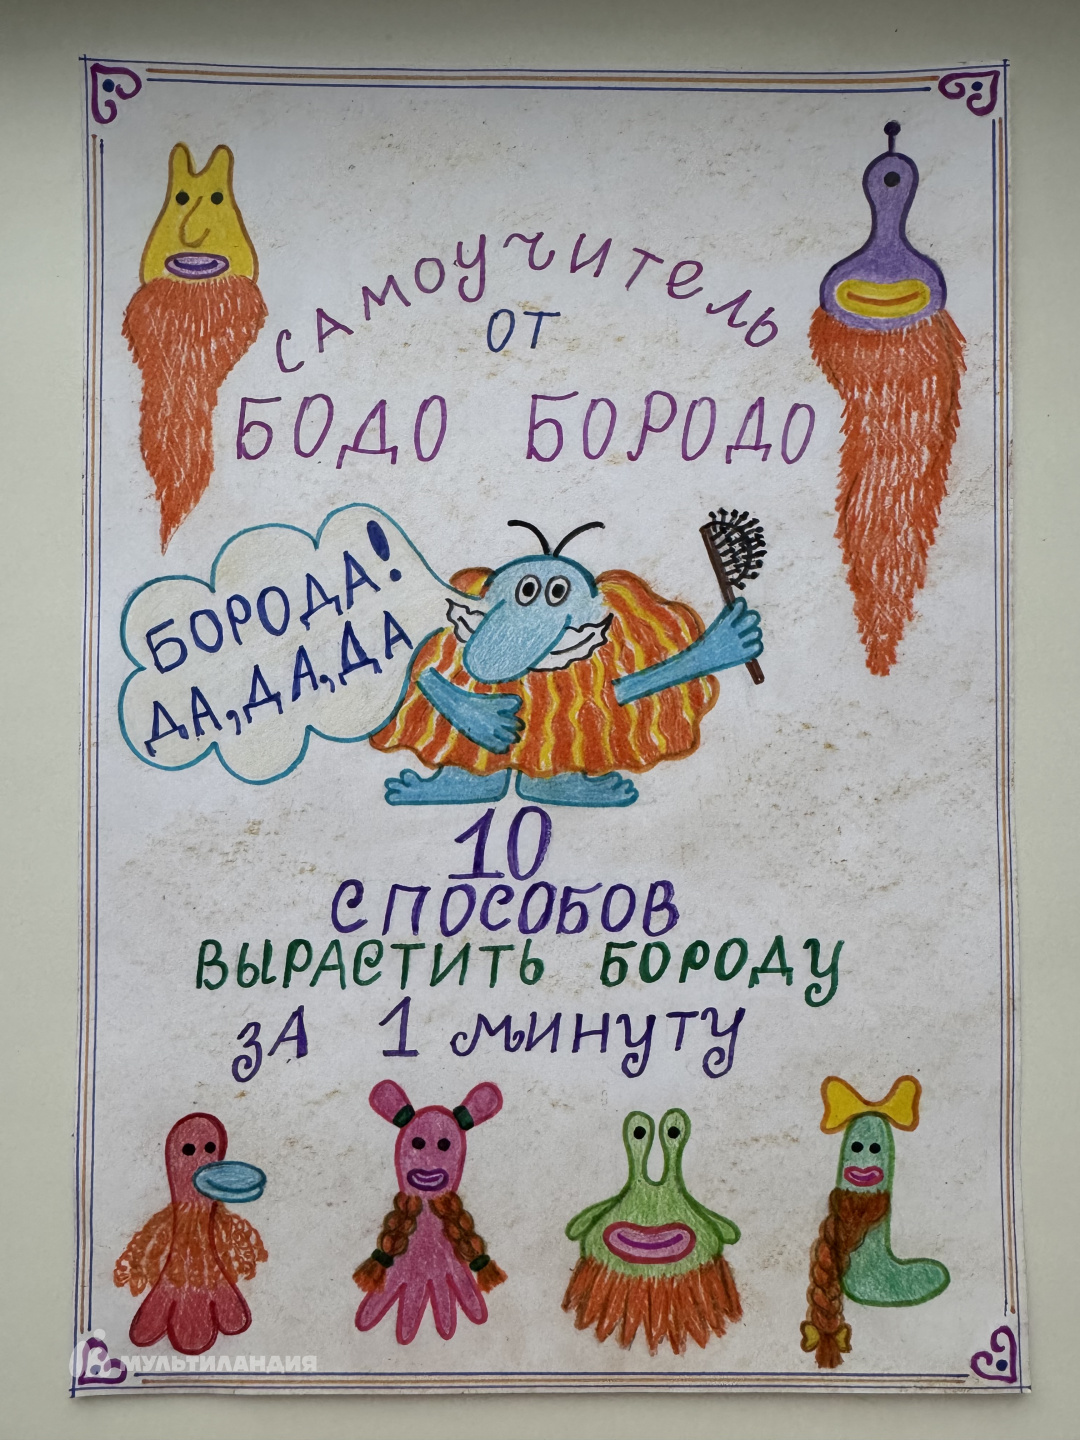 САМОУЧИТЕЛЬ
ОТ
БОДО БОРОДО
БОРОДА!
ДА, ДА, ДА
10
СПОСОБОВ
ВЫРАСТИТЬ БОРОДУ
ЗА 1 МИНУТУ
МУЛЬТИЛАНДИЯ